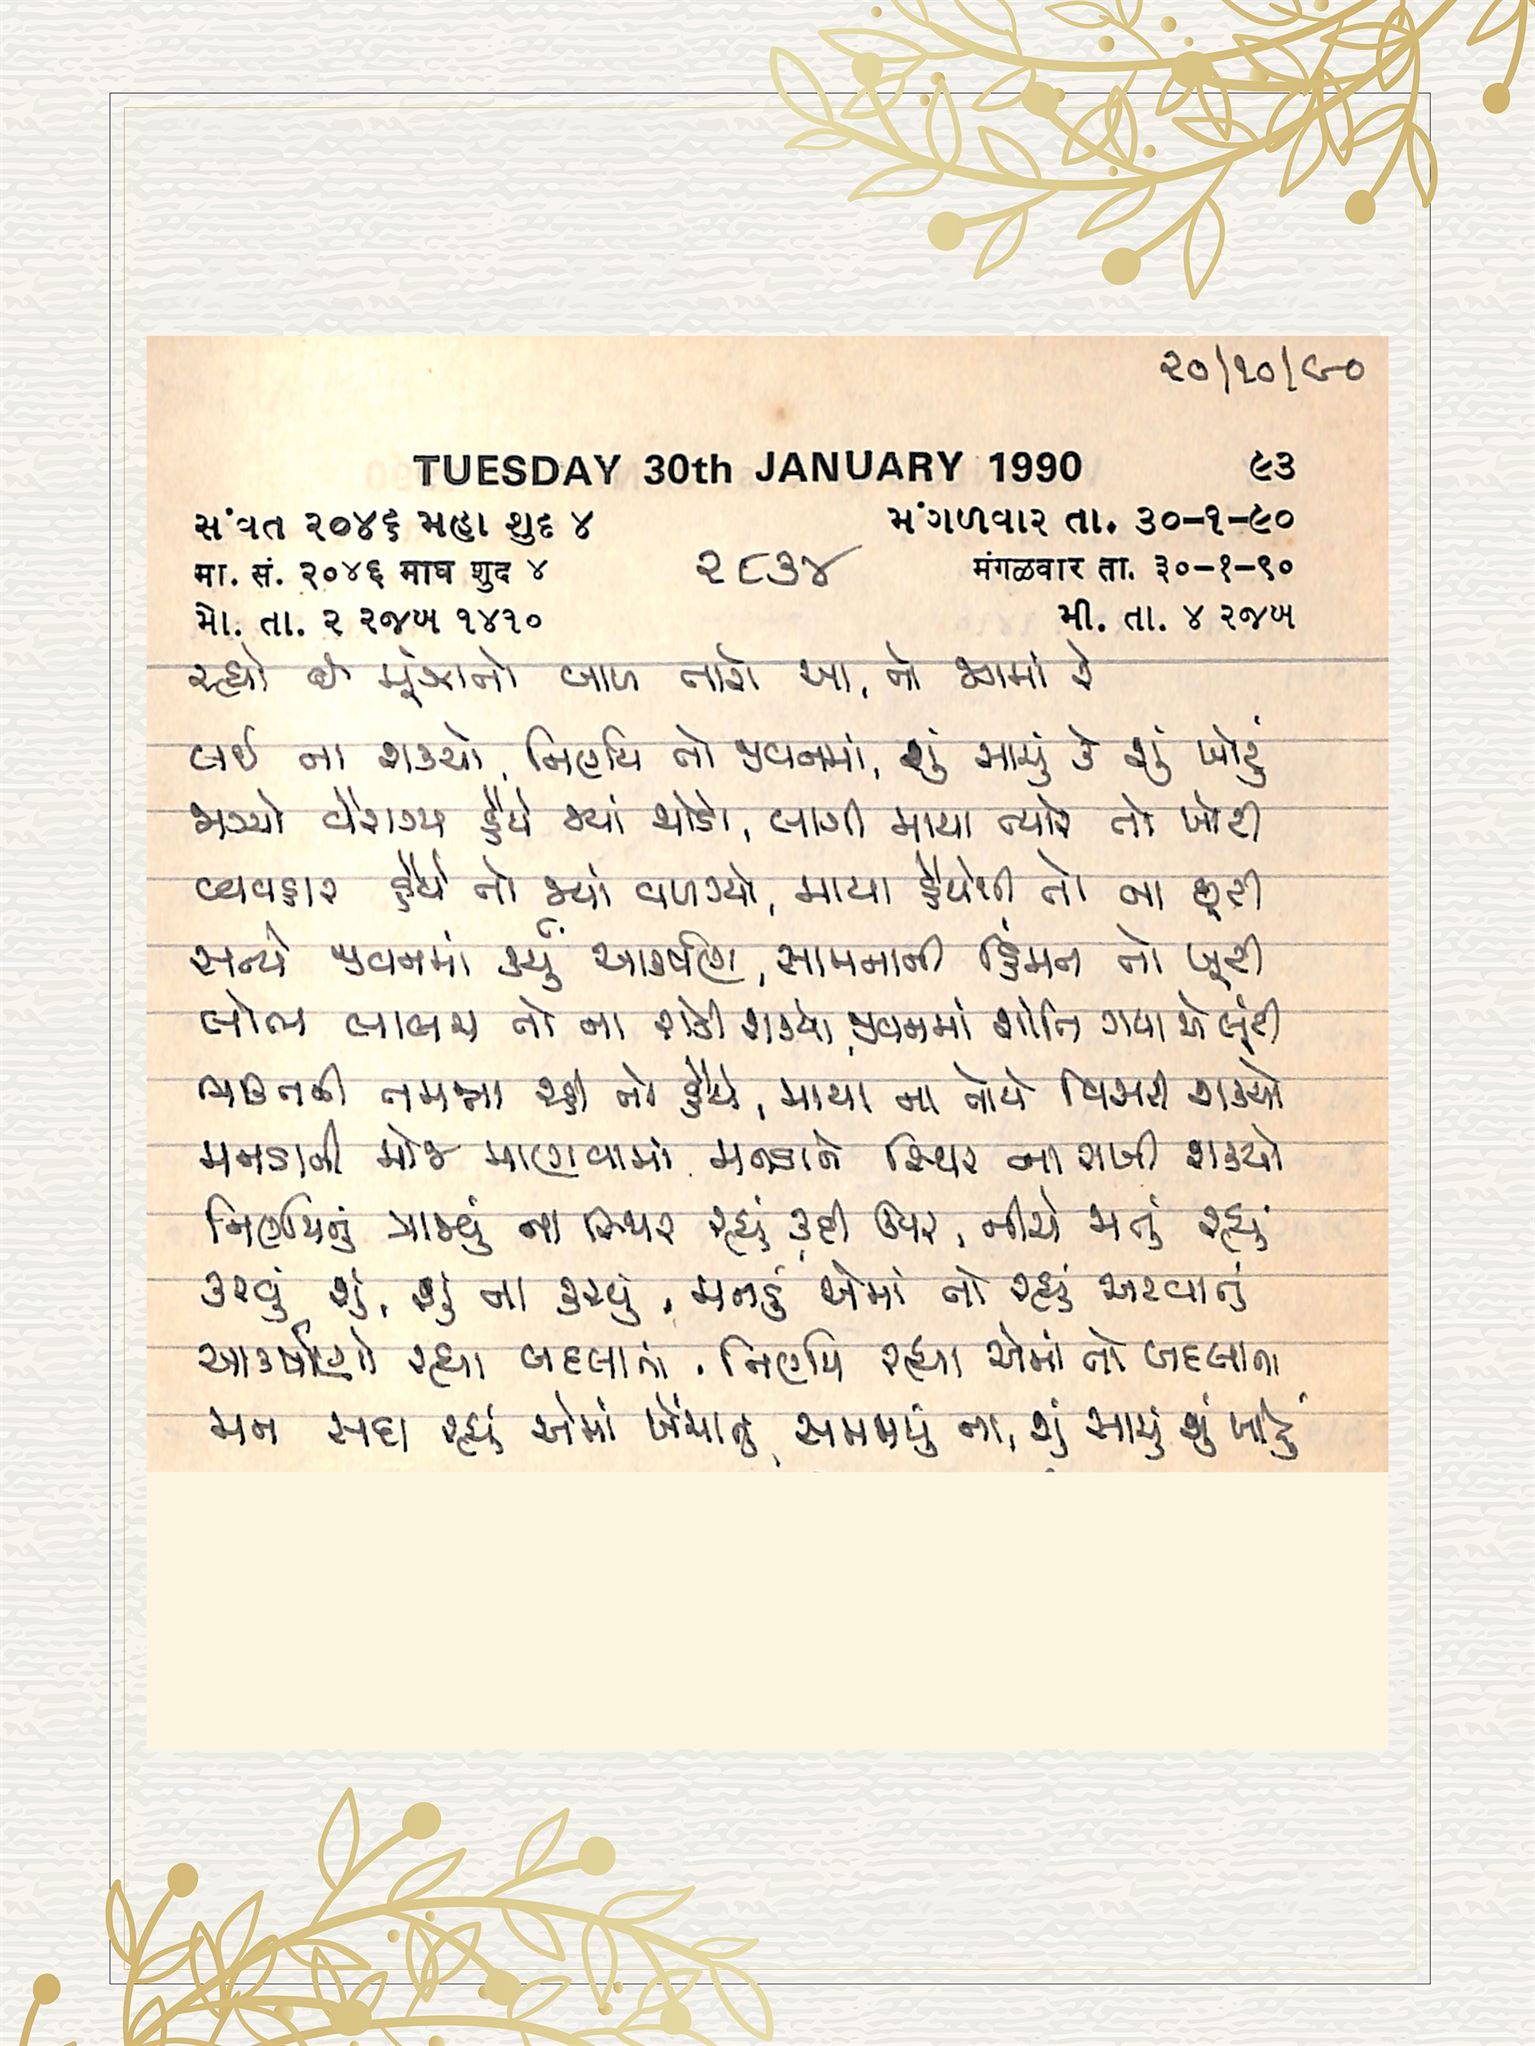 ૨૦/૧૦/૯૦
TUESDAY 30th JANUARY 1990 ૯૩
સંવત ૨૦૪૬ મહા શુદ ૪ મંગળવાર તા. ૩૦-૧-૯૦
मा. सं. २०४६ माघ शुद ४ ૨૮૩૪ मंगळवार ता. ३०-१-९०
મો. તા. ૨ રજબ ૧૪૧૦ મી. તા. ૪ રજબ
રહ્યો છે મૂંઝાતો બાળ તારો આ, તો જગમાં રે
લઈ ના શક્યો, નિર્ણય તો જીવનમાં, શું સાચું કે શું ખોટું
જાગ્યો વૈરાગ્ય હૈયે જ્યાં થોડો, લાગી માયા ત્યારે તો ખોટી
વ્યવહાર હૈયે તો જ્યાં વળગ્યો, માયા હૈયેથી તો ના છૂટી
સત્યે જીવનમાં કર્યું આકર્ષણ, સામનાની હિંમત તો ખૂટી
લોભ લાલચ તો ના રોકી શક્યો, જીવનમાં શાંતિ ગયા એ લૂંટી
ભક્તિની તમન્ના રહી તો હૈયે, માયા ના તોયે વિસરી શક્યો
મનડાની મોજ માણવામાં, મનડાને સ્થિર ના રાખી શક્યો
નિર્ણયનું ત્રાજવું ના સ્થિર રહ્યું, કદી ઉપર, નીચે થતું રહ્યું
કરવું શું, શું ના કરવું, મનડું એમાં તો રહ્યું અટવાતું
આકર્ષણો રહ્યા બદલાતા, નિર્ણય રહ્યા એમાં તો બદલાતા
મન સદા રહ્યું એમાં ખેંચાતું, સમજાયું ના, શું સાચું શું ખોટું